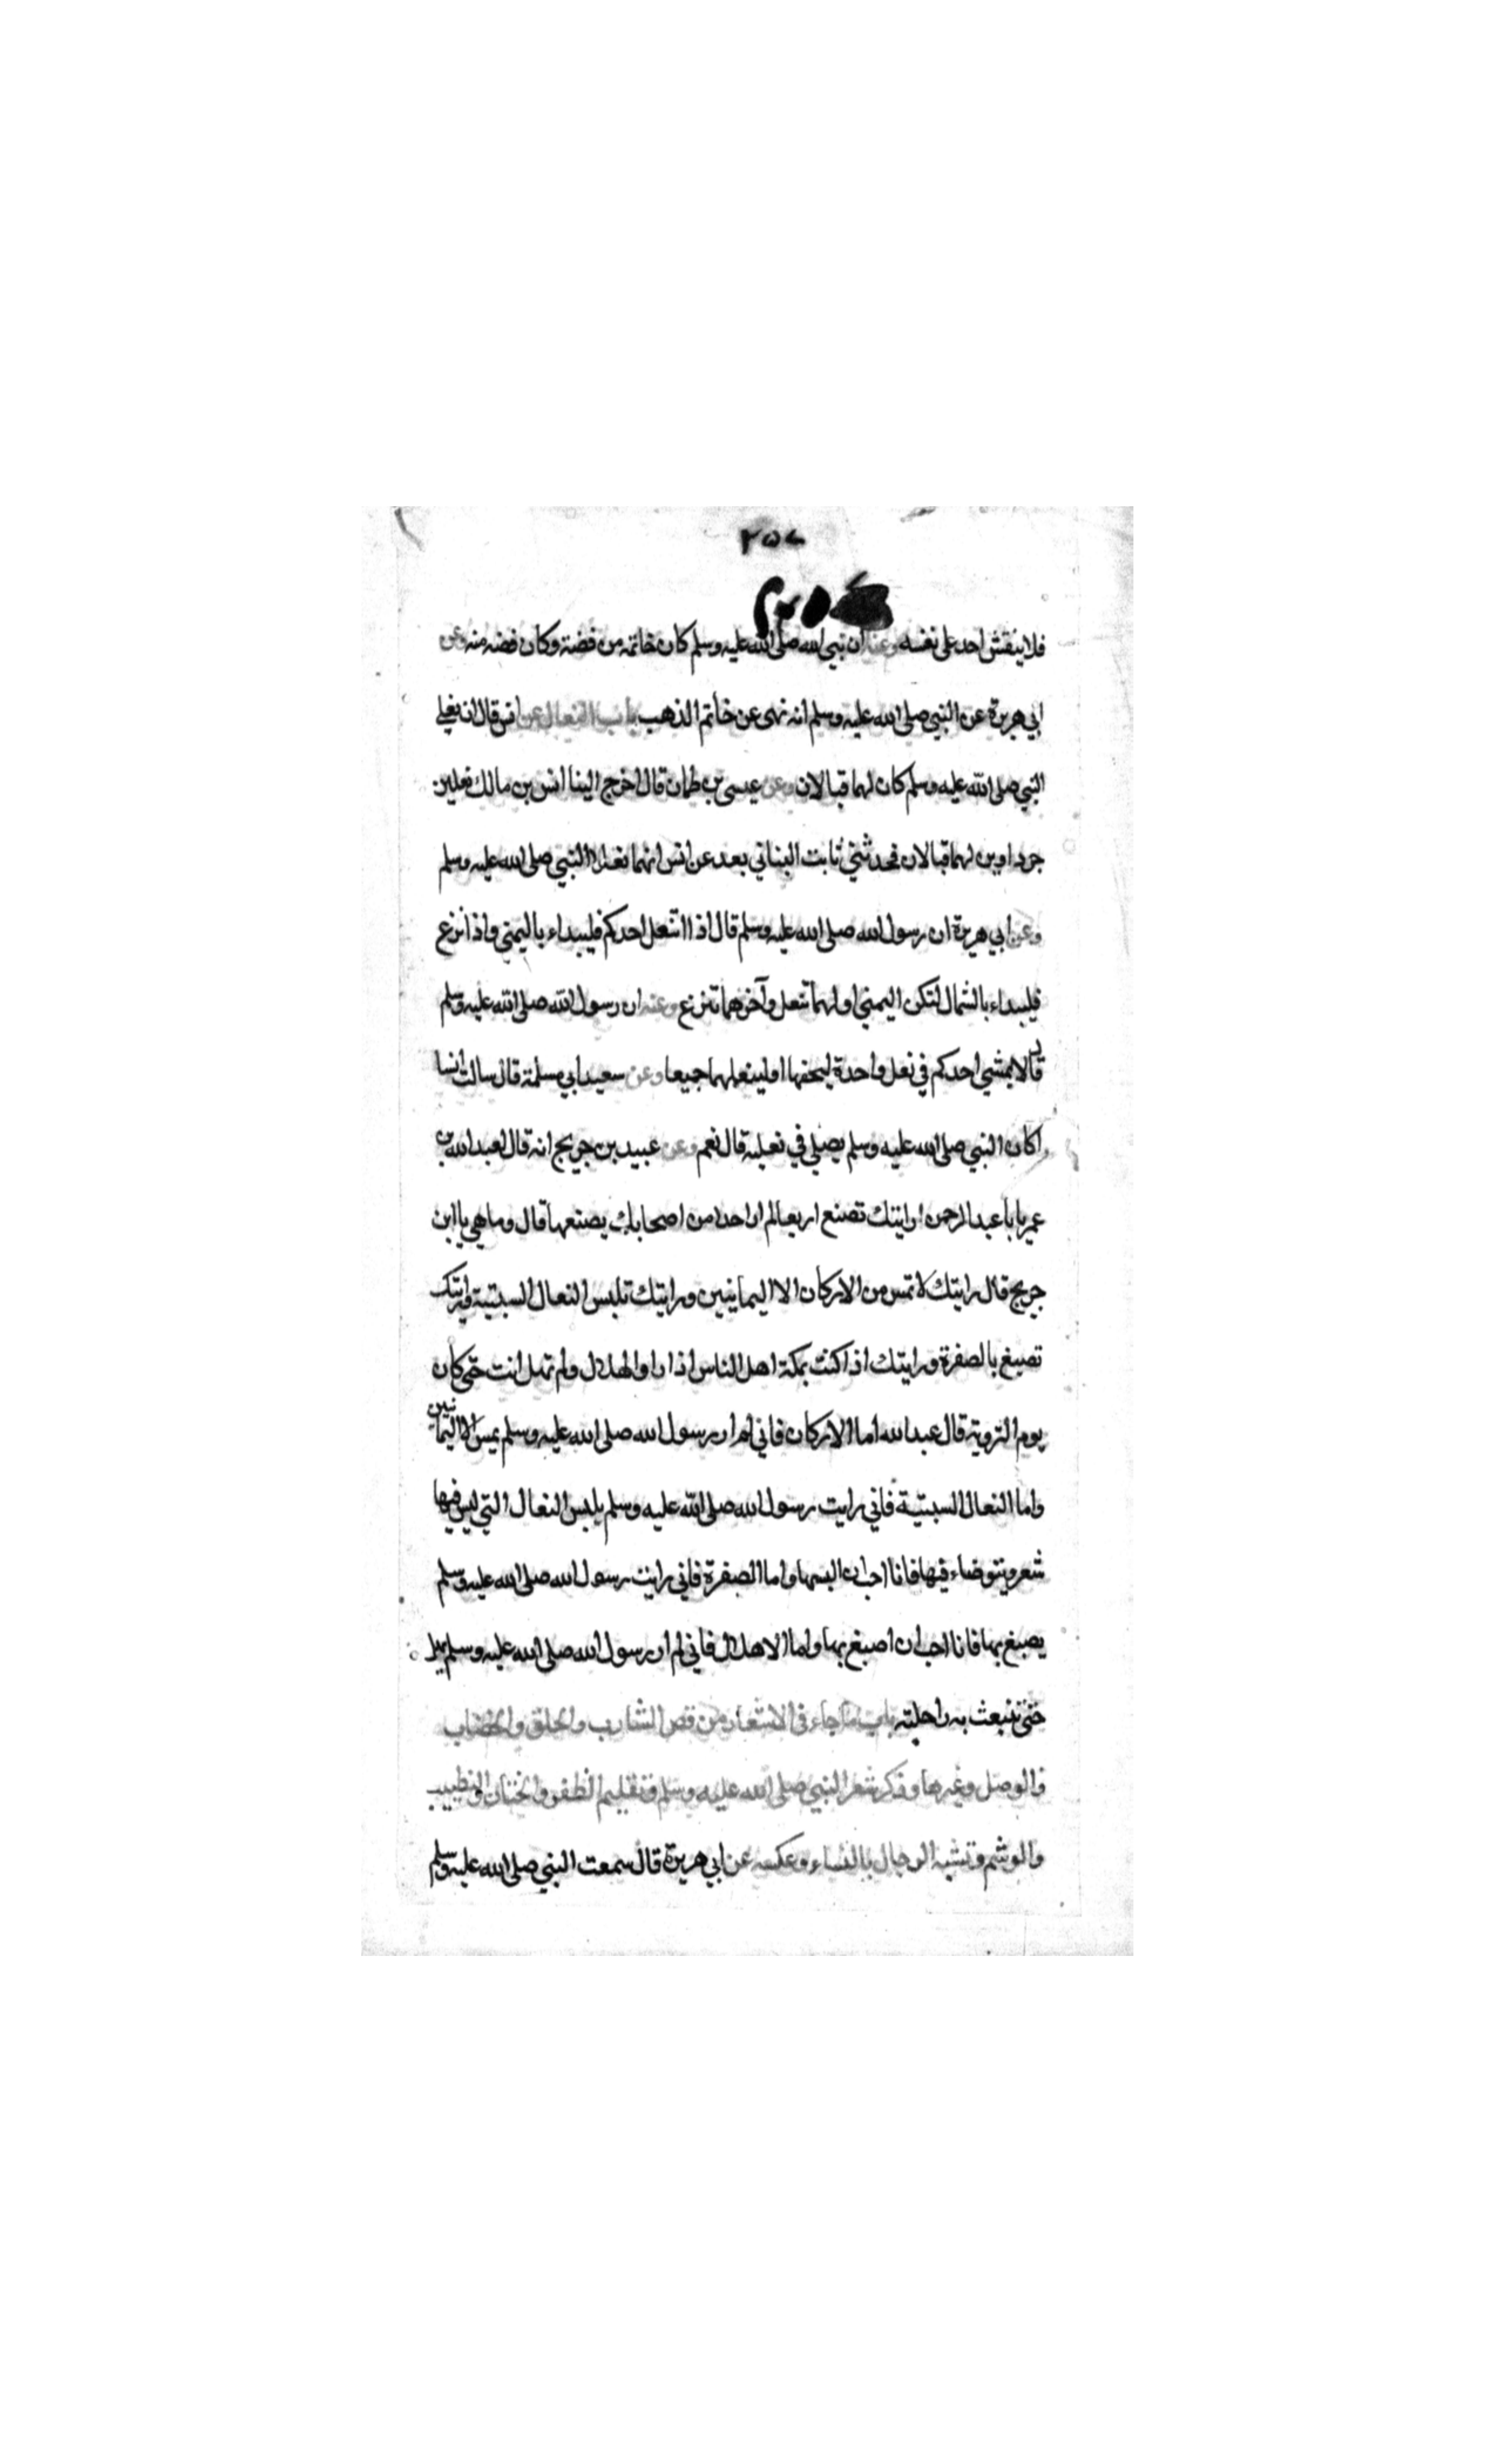 ٢٥٨
فلا ينقش احد على نفسه وعنه ان نبي الله صلى الله عليه وسلم كان خاتمه من فضة وكان فضه منه عن
ابي هريرة عن النبي صلى الله عليه وسلم انه نهى عن خاتم الذهب باب النعال عن انس قال ان نعلي
النبي صلى الله عليه وسلم كان لهما قبالان وعن عيسى بن طهمان قال اخرج الينا انس بن مالك نعلين
جرداوين لهما قبالان فحدثني ثابت البناني بعد عن انس انهما نعلا النبي صلى الله عليه وسلم
وعن ابي هريرة ان رسول الله صلى الله عليه وسلم قال اذا انتعل احدكم فليبداء باليمنى واذا نزع
فليبداء بالشمال لتكن اليمنى اولهما تنعل وآخرهما تنزع وعنه ان رسول الله صلى الله عليه وسلم
قال لا يمشي احدكم في نعل واحدة ليحفها او لينعلهما جميعا وعن سعيد ابي مسلمة قال سالت انسا
اكان النبي صلى الله عليه وسلم يصلي في نعليه قال نعم وعن عبيد بن جريج انه قال لعبد الله بن
عمر يا با عبد الرحمن رايتك تصنع اربعا لم ار احدا من اصحابك يصنعها قال وما هي يا ابن
جريج قال رايتك لا تمس من الاركان الا اليمانيين ورايتك تلبس النعال السبتية ورايتك
تصبغ بالصفرة ورايتك اذا كنت بمكة اهل الناس اذا راوا الهلال ولم تهل انت حتى كان
يوم التروية قال عبد الله اما الاركان فاني لم ار رسول الله صلى الله عليه وسلم يمس الا اليمانيين
واما النعال السبتية فاني رايت رسول الله صلى الله عليه وسلم يلبس النعال التي ليس فيها
شعر ويتوضاء فيها فانا احب ان البسها واما الصفرة فاني رايت رسول الله صلى الله عليه وسلم
يصبغ بها فانا احب ان اصبغ بها واما الاهلال فاني لم ار رسول الله صلى الله عليه وسلم يهل
حتى تنبعث به راحلته باب ما جاء في الاشعار من قص الشارب والحلق والخضاب
والوصل وغيرها وذكر شعر النبي صلى الله عليه وسلم وتقليم الظفر والختان والتطييب
والوشم وتشبه الرجال بالنساء وعكسه عن ابي هريرة قال سمعت النبي صلى الله عليه وسلم